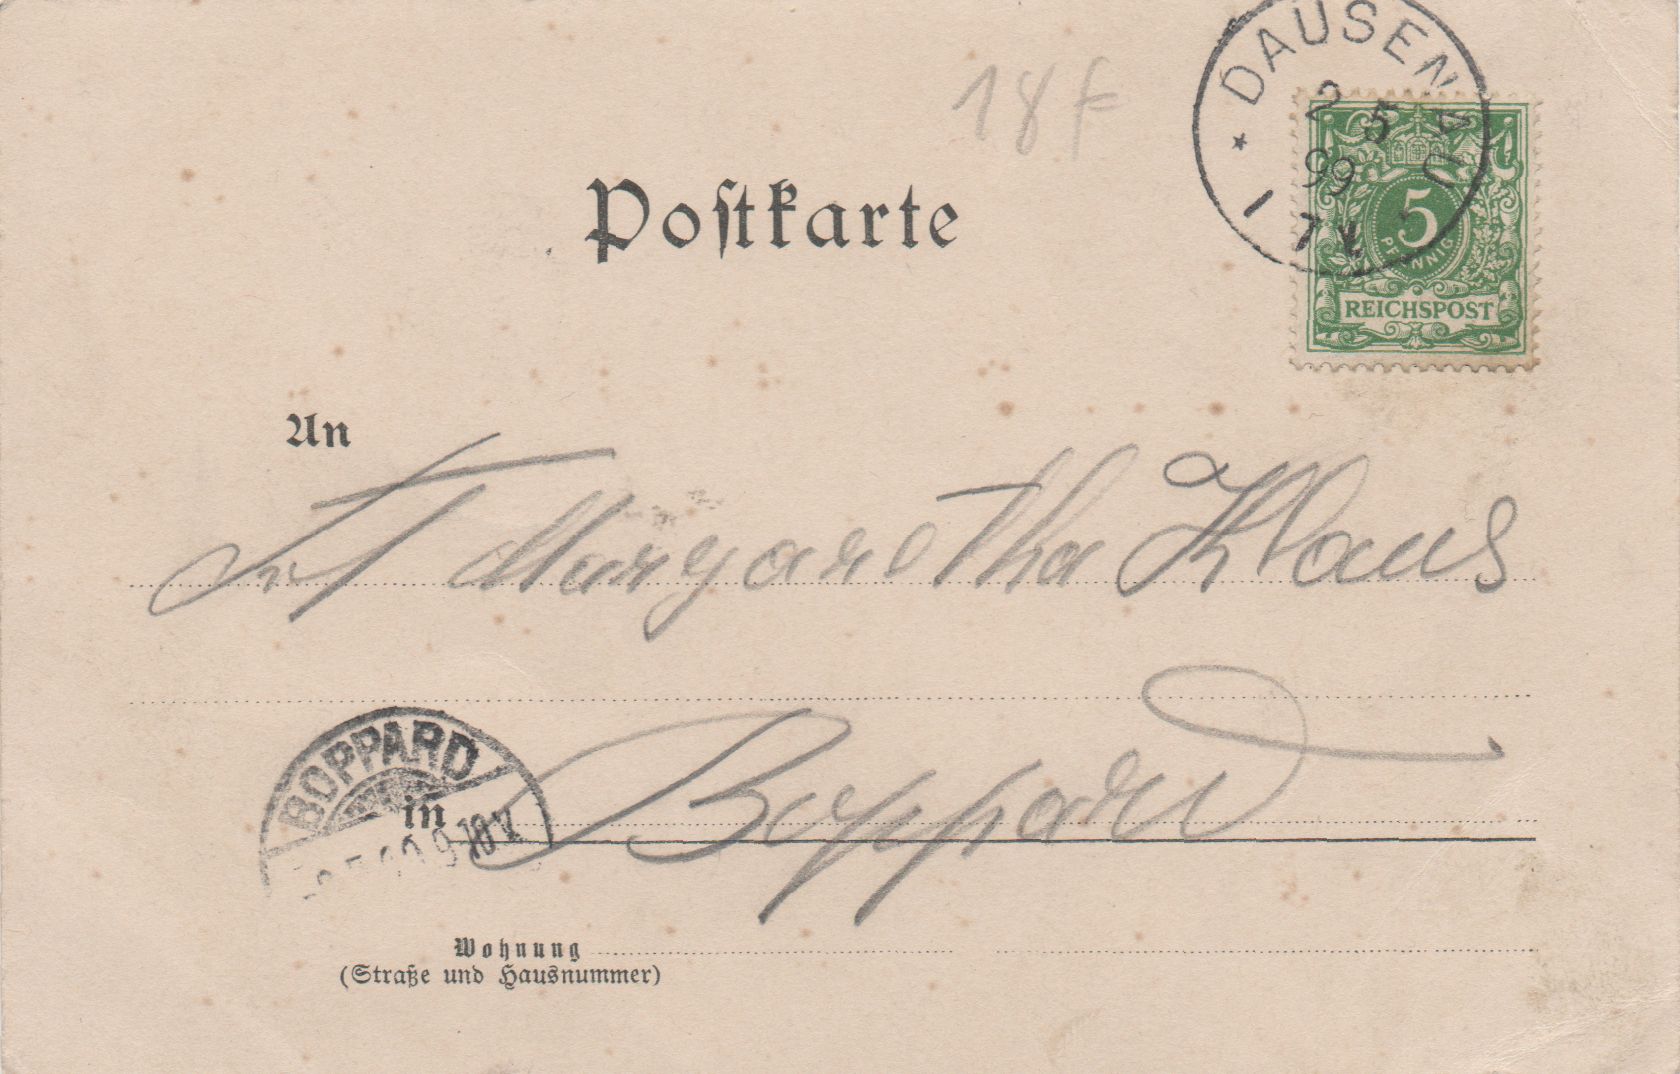 18 F
DAUSENAU
2 5
99
1 7
5
PFENNIG
REICHSPOST
Postkarte
An
Frl Margaretha Klaus
BOPPARD
in Boppard
9-10 V
Wohnung
(Straße und Hausnummer)